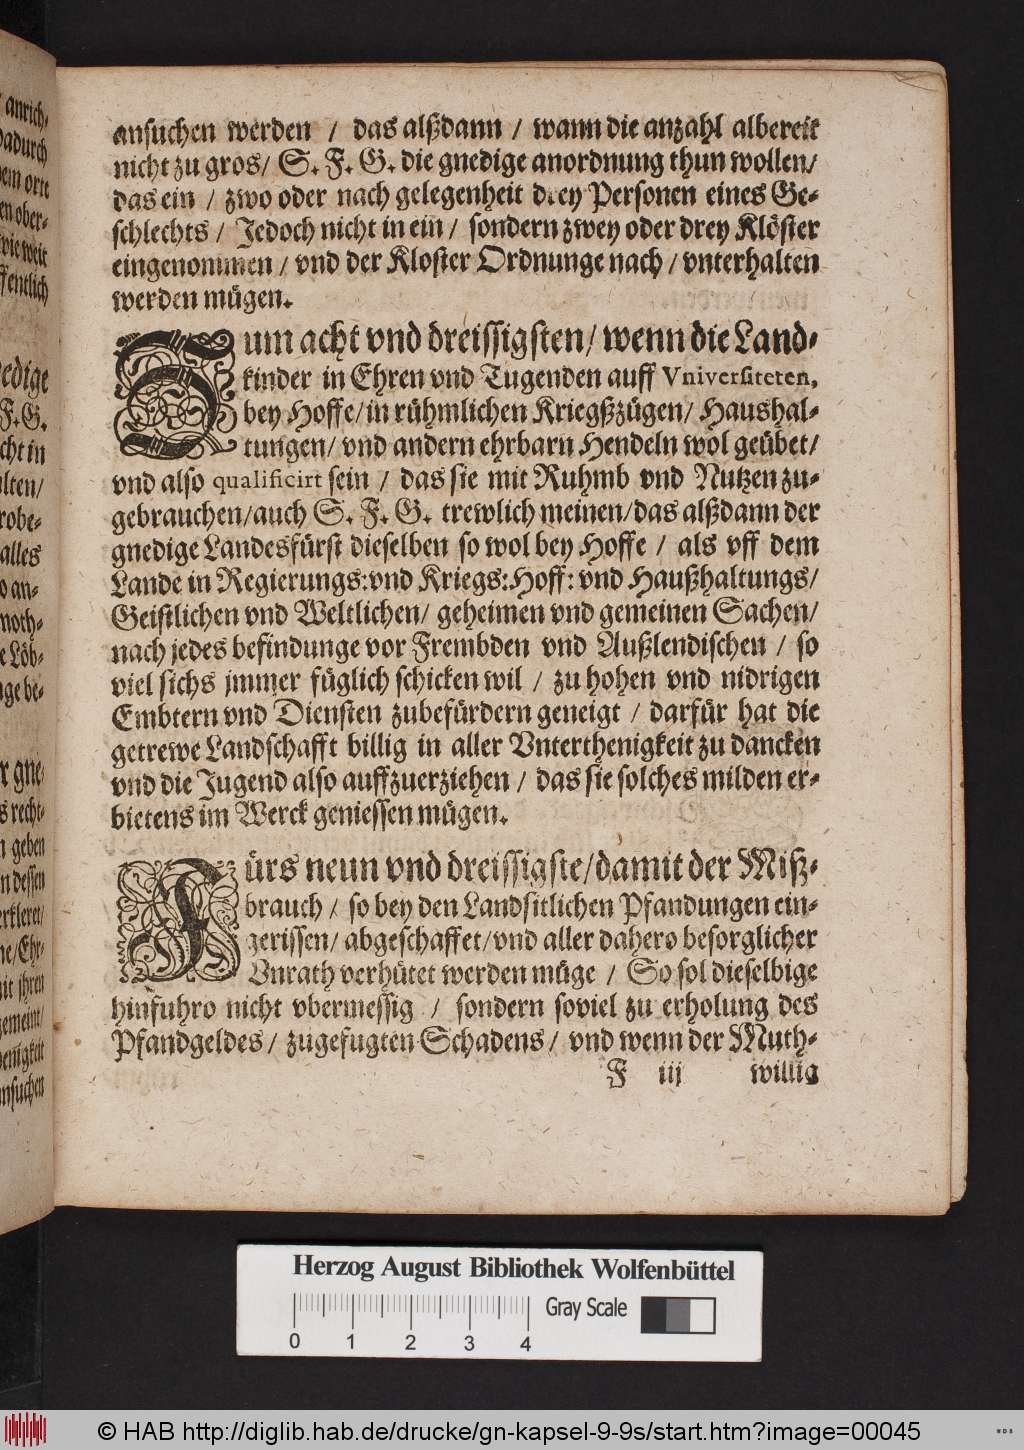 anrich-
dadurch
orte
ober-
wie weit
ffentlich
F. G.
cht in
alten/
alles
noth-
e Löb-
ge be-
gne-
recht-
geben
dessen
ansuchen
ansuchen werden / das alßdann / wann die anzahl albereit
nicht zu gros/ S. F. G. die gnedige anordnung thun wollen/
das ein / zwo oder nach gelegenheit drey Personen eines Ge-
schlechts / Jedoch nicht in ein / sondern zwey oder drey Klöster
eingenommen / vnd der Kloster Ordnunge nach / vnterhalten
werden mügen.
Zum acht vnd dreissigsten/ wenn die Land-
kinder in Ehren vnd Tugenden auff Vniversiteten,
bey Hoffe/ in rühmlichen Kriegßzügen/ Haushal-
tungen/ vnd andern ehrbarn Hendeln wol geübet/
vnd also qualificirt sein / das sie mit Ruhmb vnd Nutzen zu-
gebrauchen/ auch S. F. G. trewlich meinen/ das alßdann der
gnedige Landesfürst dieselben so wol bey Hoffe / als vff dem
Lande in Regierungs: vnd Kriegs: Hoff: vnd Haußhaltungs/
Geistlichen vnd Weltlichen/ geheimen vnd gemeinen Sachen/
nach jedes befindunge vor Frembden vnd Außlendischen / so
viel sichs jmmer füglich schicken wil / zu hohen vnd nidrigen
Embtern vnd Diensten zubefürdern geneigt / darfür hat die
getrewe Landschafft billig in aller Vnterthenigkeit zu dancken
vnd die Jugend also auffzuerziehen / das sie solches milden er-
bietens im Werck geniessen mügen.
Fürs neun vnd dreissigste/ damit der Miß-
brauch / so bey den Landsitlichen Pfandungen ein-
gerissen/ abgeschaffet/ vnd aller dahero besorglicher
Vnrath verhütet werden müge / So sol dieselbige
hinfuhro nicht vbermessig / sondern soviel zu erholung des
Pfandgeldes / zugefugten Schadens / vnd wenn der Muth-
F iij willig
Herzog August Bibliothek Wolfenbüttel
Gray Scale
0 1 2 3 4
© HAB http://diglib.hab.de/drucke/gn-kapsel-9-9s/start.htm?image=00045